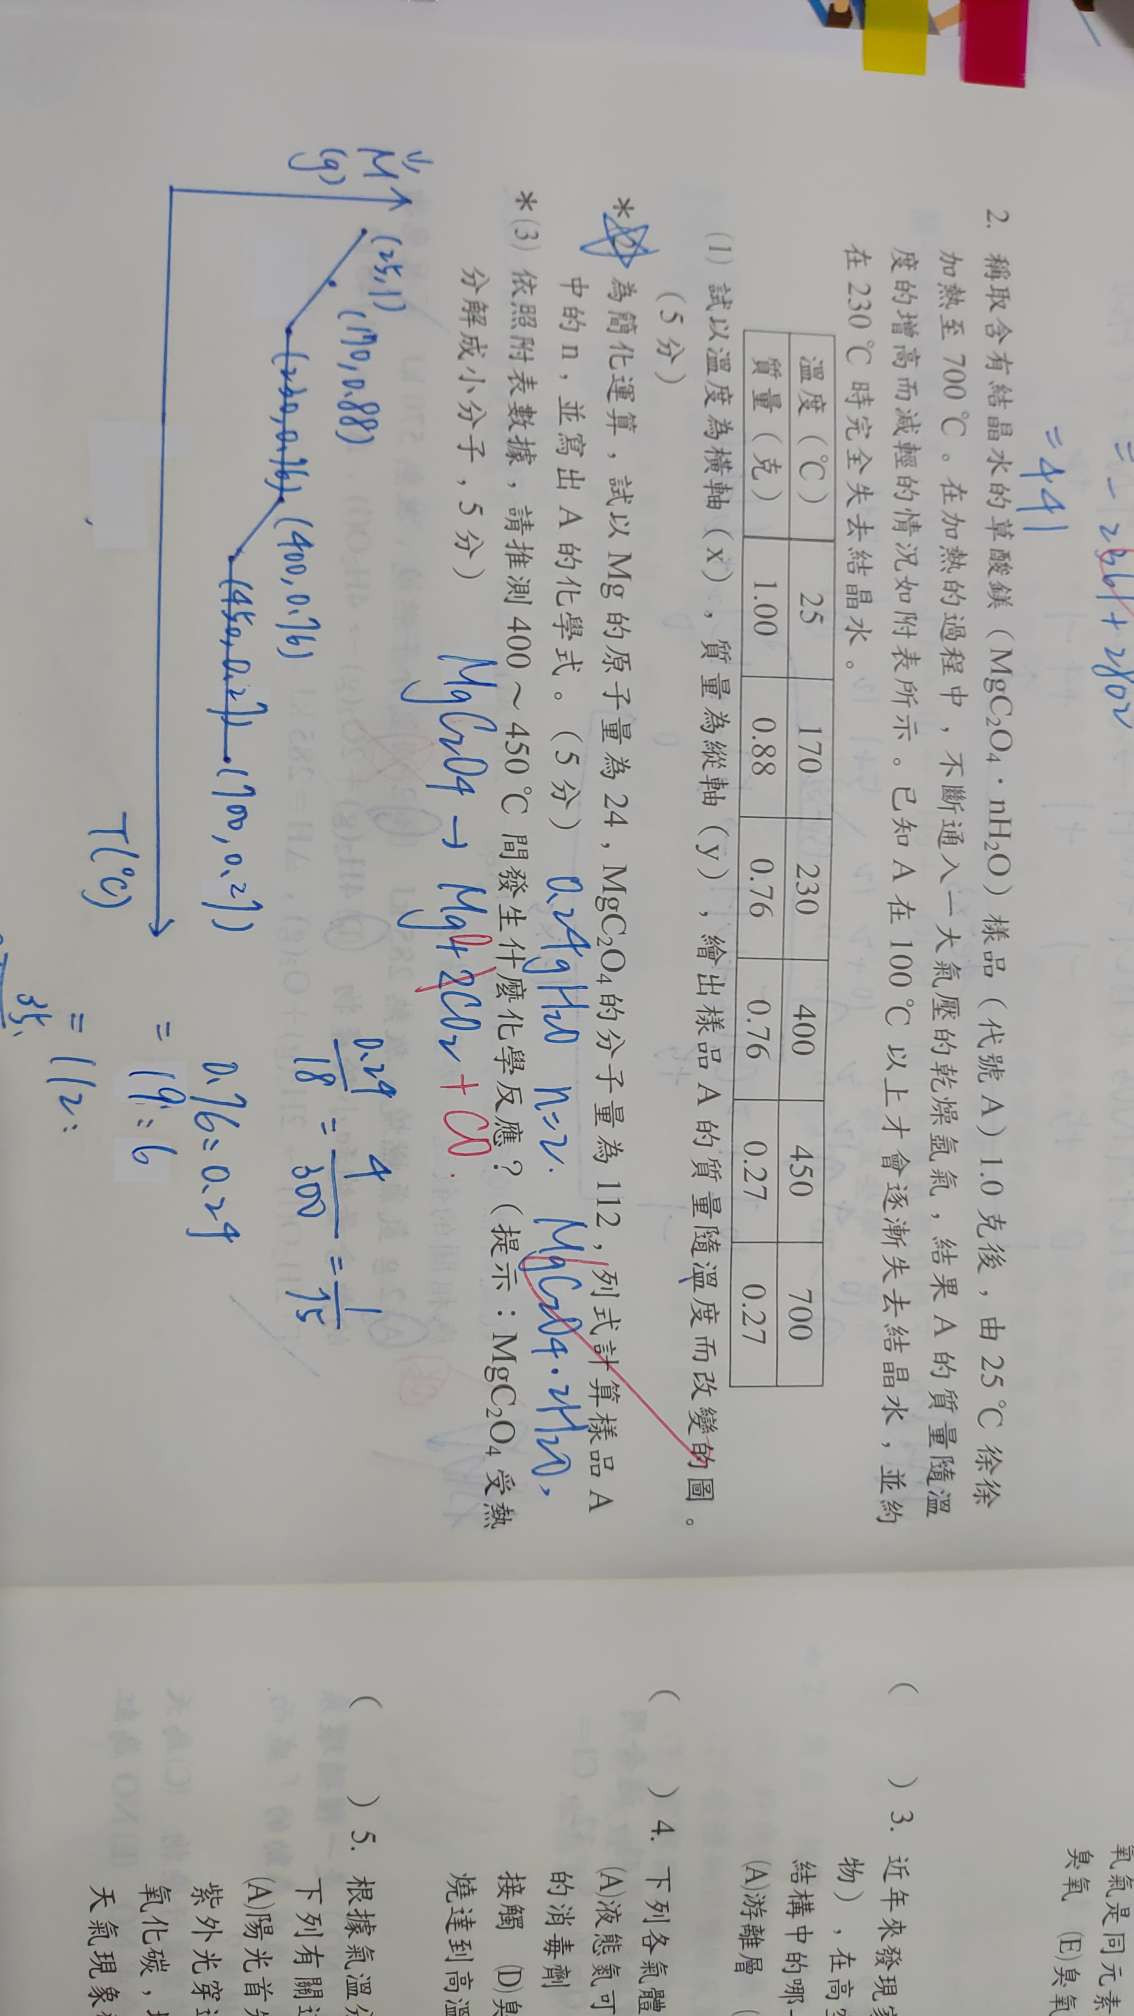 = - 2361 + 2802
= 441
2. 稱取含有結晶水的草酸鎂（MgC₂O₄．nH₂O）樣品（代號 A）1.0 克後，由 25℃ 徐徐
加熱至 700℃。在加熱的過程中，不斷通入一大氣壓的乾燥氬氣，結果 A 的質量隨溫
度的增高而減輕的情況如附表所示。已知 A 在 100℃ 以上才會逐漸失去結晶水，並約
在 230℃ 時完全失去結晶水。
溫度（℃） 25 170 230 400 450 700
質量（克） 1.00 0.88 0.76 0.76 0.27 0.27
(1) 試以溫度為橫軸（x），質量為縱軸（y），繪出樣品 A 的質量隨溫度而改變的圖。
（5 分）
* 為簡化運算，試以 Mg 的原子量為 24，MgC₂O₄的分子量為 112，列式計算樣品 A
中的 n，並寫出 A 的化學式。（5 分） 0.24g H₂O n=2. MgC₂O₄．2H₂O,
*(3) 依照附表數據，請推測 400～450℃ 間發生什麼化學反應？（提示：MgC₂O₄ 受熱
分解成小分子，5 分） MgC₂O₄ → MgO + CO₂ + CO.
M
(g)
(25,1)
(170,0.88)
(230,0.76)
(400,0.76)
(450,0.27)
(700,0.27)
T(℃)
0.24/18 = 4/300 = 1/75
0.76 = 0.24
= 19 : 6
= 112 :
( ) 3. 近年來發現
物），在高
結構中的哪
(A)游離層
( ) 4. 下列各氣體
(A)液態氮可
的消毒劑
接觸 (D)臭
燒達到高溫
( ) 5. 根據氣溫分
下列有關
(A)陽光首先
紫外光穿
氧化碳，
天氣現象
氧氣是同元素
臭氧 (E)臭氧